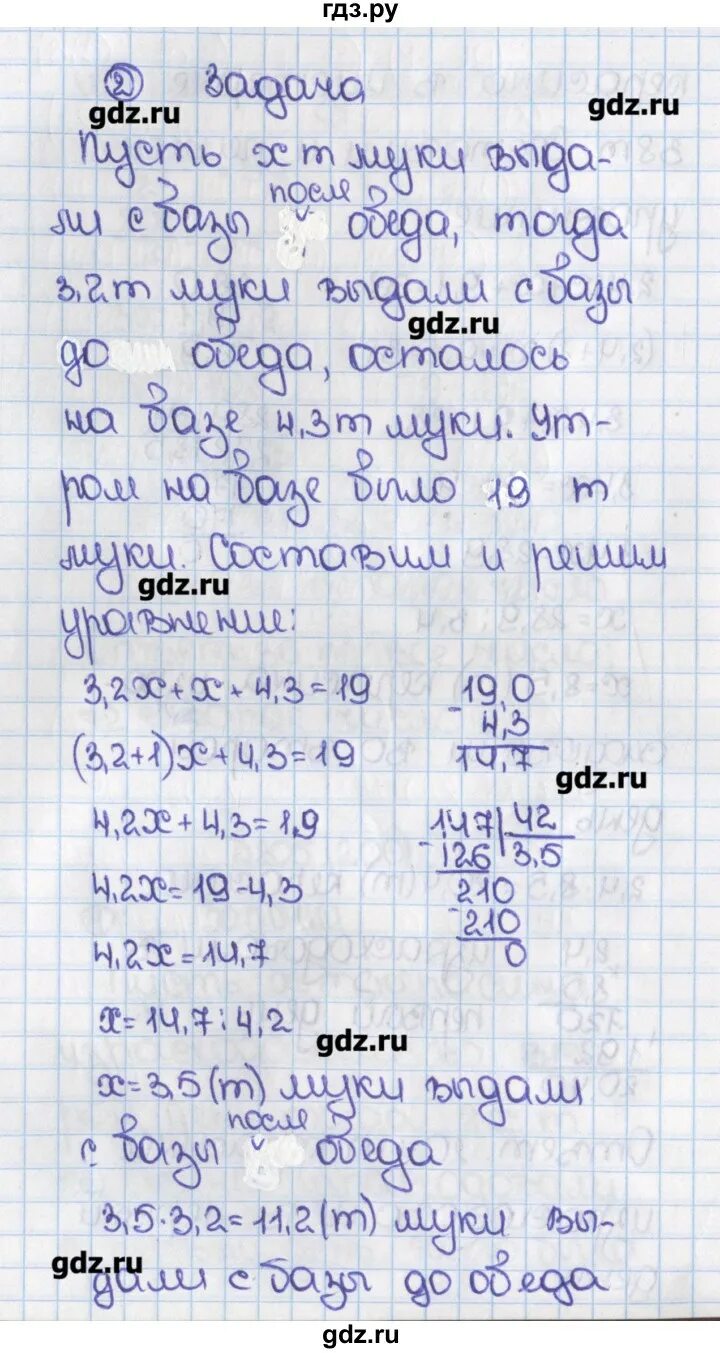 гдз.ру
② Задача
gdz.ru
gdz.ru
Пусть х т муки выда-
ли с базы после обеда, тогда
3,2 т муки выдали с базы
gdz.ru
до обеда, осталось
на базе 4,3 т муки. Ут-
ром на базе было 19 т
муки. Составим и решим
gdz.ru
уравнение:
3,2х + х + 4,3 = 19
(3,2+1)х + 4,3 = 19
4,2х + 4,3 = 1,9
4,2х = 19 - 4,3
4,2х = 14,7
х = 14,7 : 4,2
- 19,0
4,3
14,7
gdz.ru
- 147 | 42
126 | 3,5
- 210
210
0
gdz.ru
х = 3,5 (т) муки выдали
с базы после обеда
3,5 · 3,2 = 11,2 (т) муки вы-
gdz.ru
дали с базы до обеда
gdz.ru